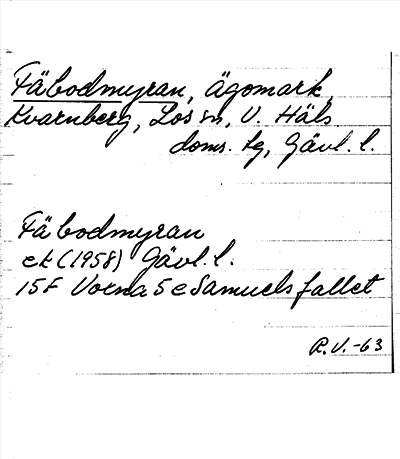 Fäbodmyran, ägomark,
Kvarnberg, Los sn, V. Häls.
doms. tg, Gävl. l.
Fäbodmyran
ek (1958) Gävl. l.
15F Voxna 5 e Samuelsfallet
R.V.-63